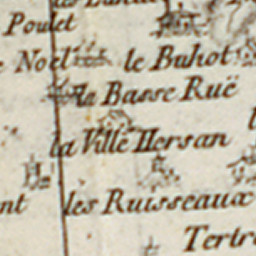 Poulet
Noel le Buhot
la Basse Ruë
la Ville Hersan
les Ruisseaux